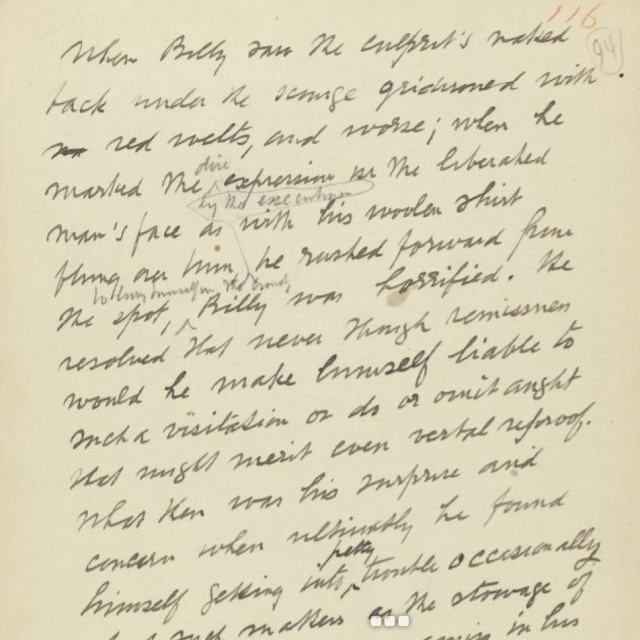 116
94
When Billy saw the culprit's naked
back under the scourge gridironed with
red welts, and worse; when he
dire
marked the expression in the liberated
by the executioner
man's face as with his woolen shirt
flung over him, he rushed forward from
to bury himself in the crowd,
the spot, Billy was horrified. He
resolved that never through remissness
would he make himself liable to
such a visitation or do or omit aught
that might merit even verbal reproof.
What then was his surprise and
concern when ultimately he found
petty
himself getting into trouble occasionally
such matters as the stowage of
in his